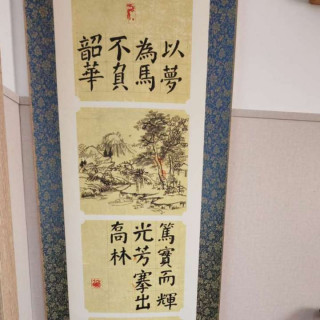 以夢
為馬
不負
韶華
篤實而輝
光芳搴出
高林